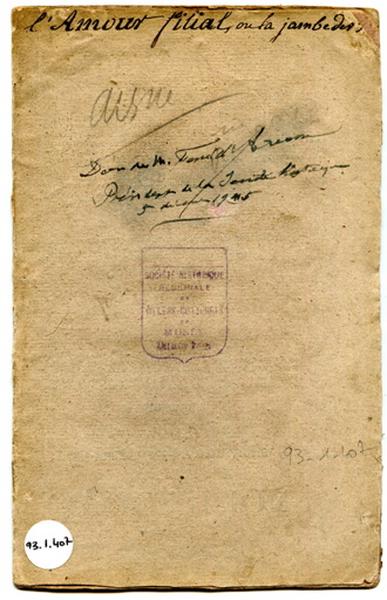 l'Amour filial, ou la jambe de
aisne
Don de M.
Président de la Société Historique
5 1945
SOCIÉTÉ HISTORIQUE
RÉGIONALE
DE
VILLERS-COTTERETS
MUSÉE
93-1-407
93.1.407